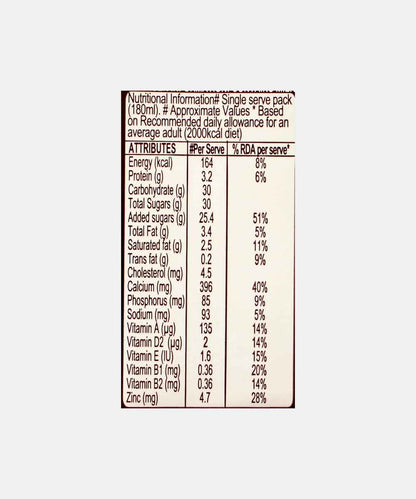 Nutritional Information# Single serve pack
(180ml). # Approximate Values * Based
on Recommended daily allowance for an
average adult (2000kcal diet)
ATTRIBUTES #Per Serve % RDA per serve*
Energy (kcal) 164 8%
Protein (g) 3.2 6%
Carbohydrate (g) 30
Total Sugars (g) 30
Added sugars (g) 25.4 51%
Total Fat (g) 3.4 5%
Saturated fat (g) 2.5 11%
Trans fat (g) 0.2 9%
Cholesterol (mg) 4.5
Calcium (mg) 396 40%
Phosphorus (mg) 85 9%
Sodium (mg) 93 5%
Vitamin A (µg) 135 14%
Vitamin D2 (µg) 2 14%
Vitamin E (IU) 1.6 15%
Vitamin B1 (mg) 0.36 20%
Vitamin B2 (mg) 0.36 14%
Zinc (mg) 4.7 28%